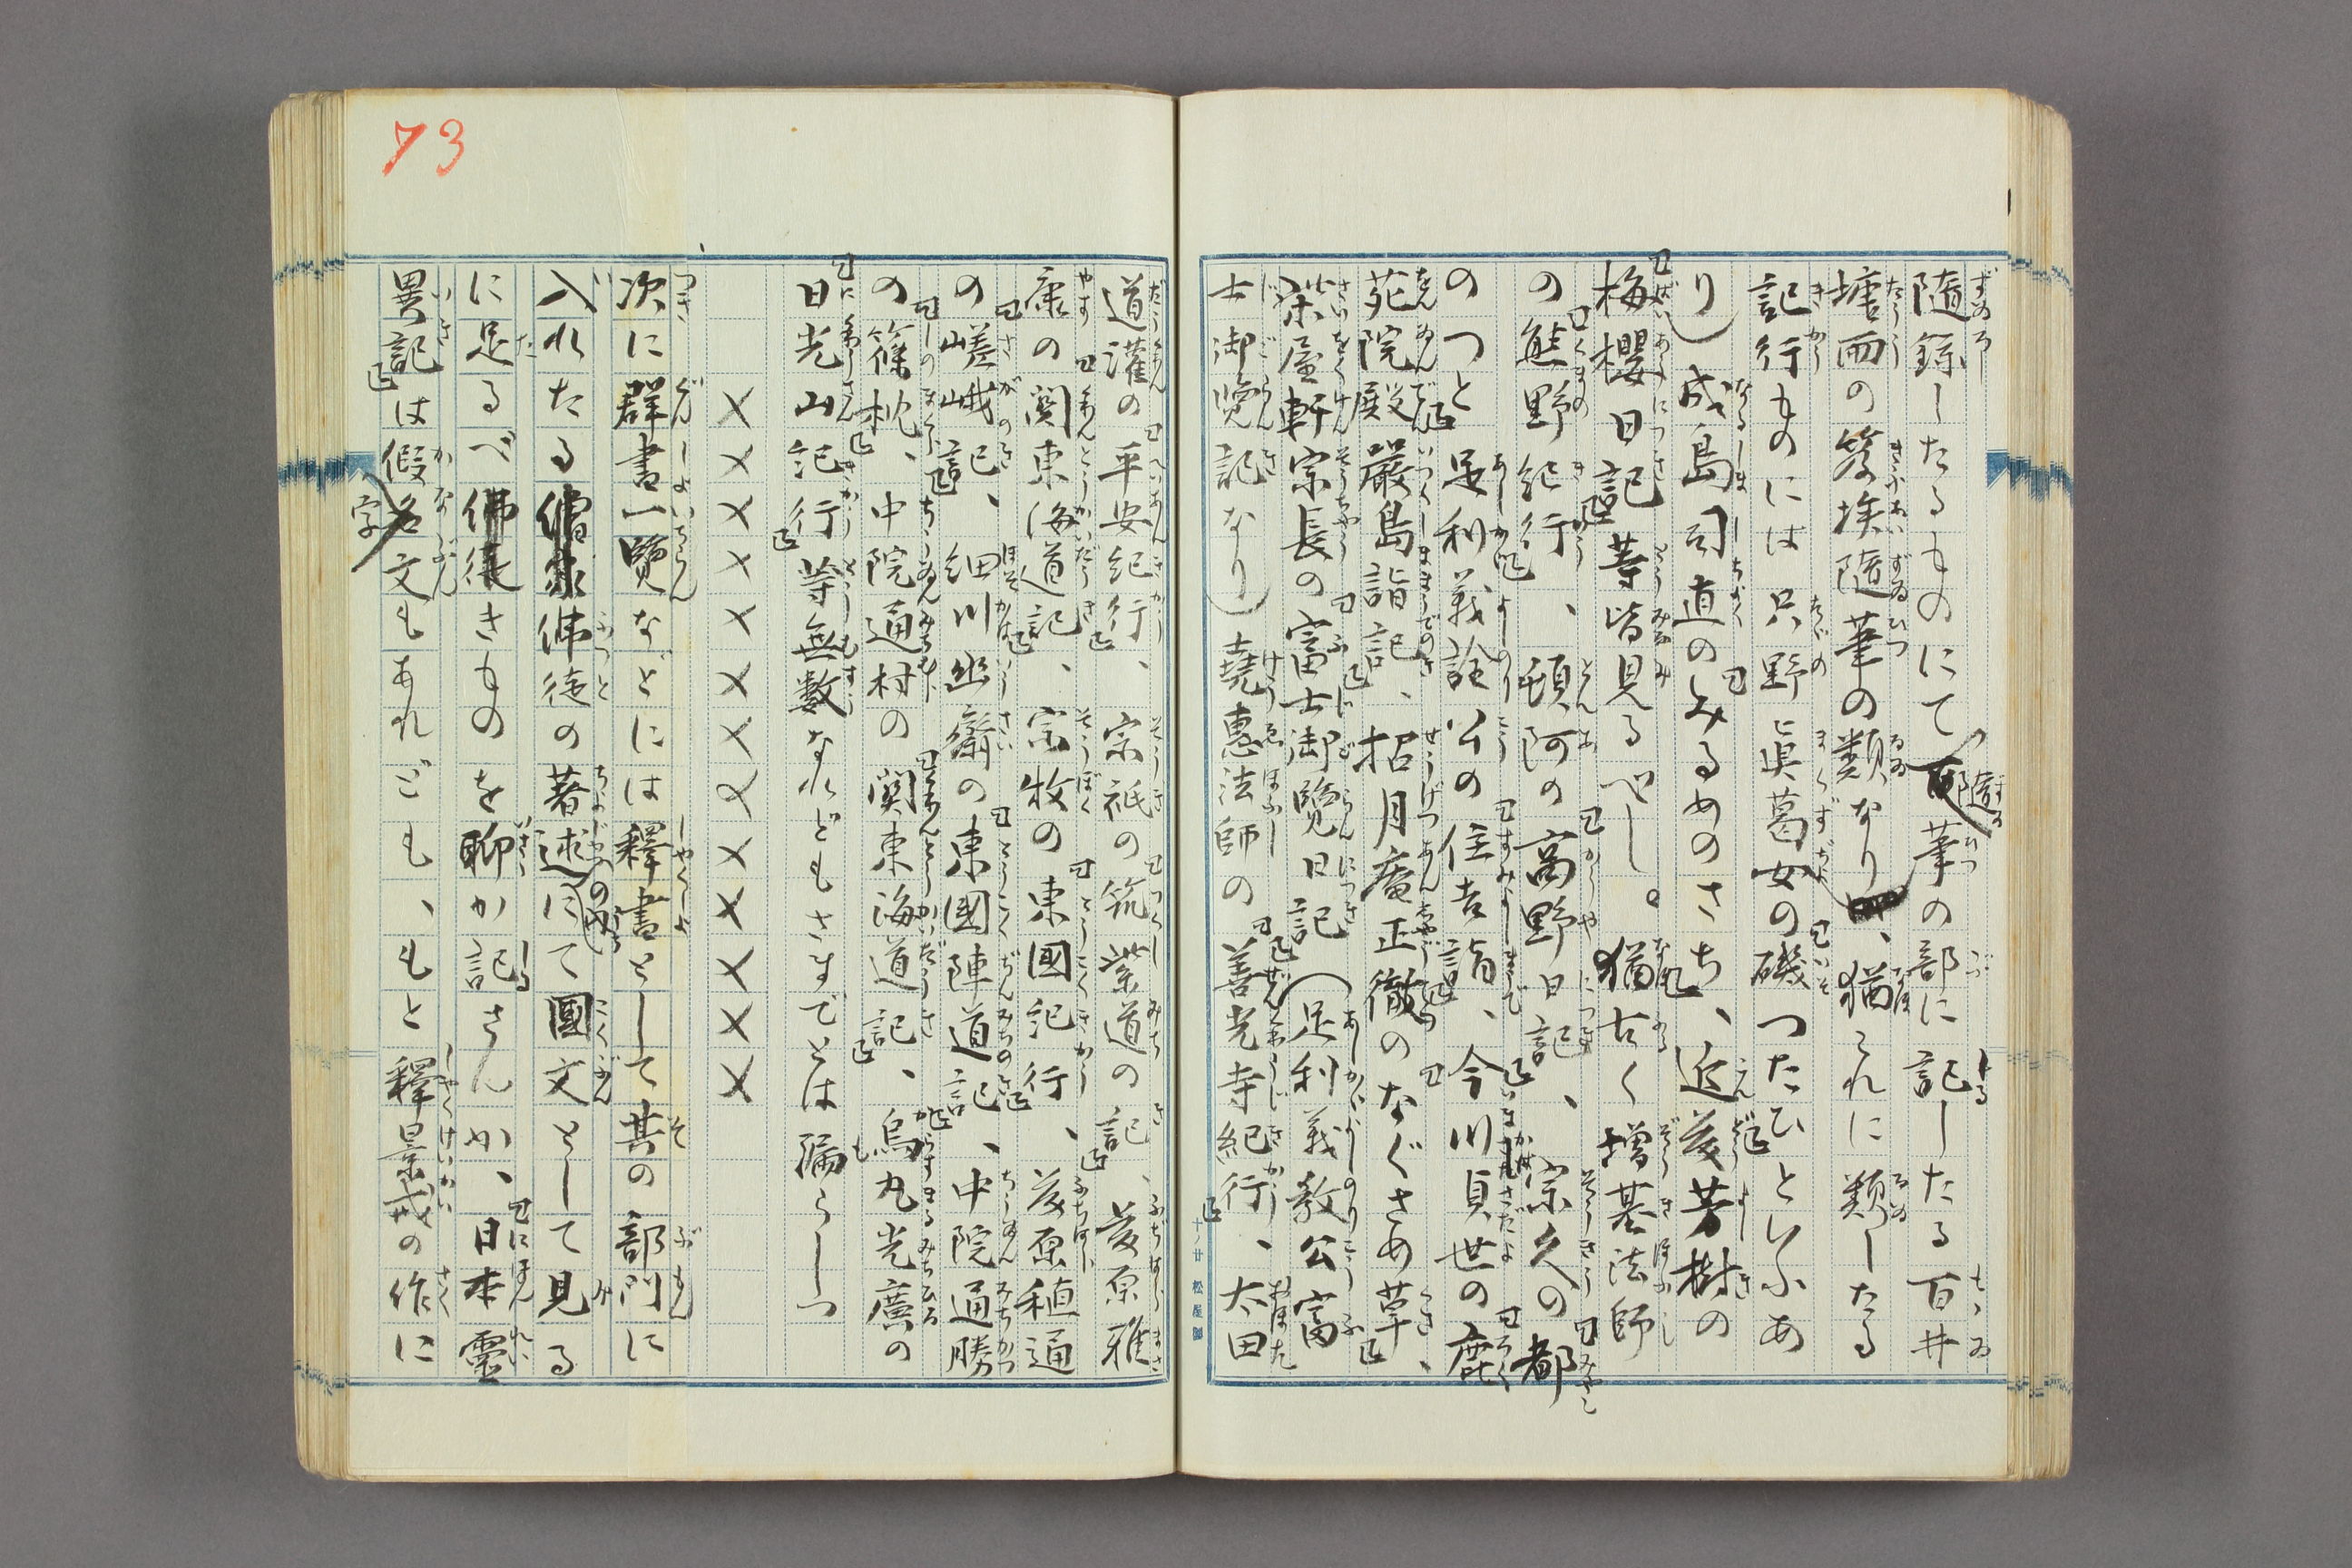 隨錄したるものにて隨筆の部に記したる百井
塘雨の笈埃隨筆の類なり、猶これに類したる
記行ものには只野眞葛女の磯つたひといふあ
り）成島司直のみるめのさち、近藤芳樹の
梅櫻日記等皆見るべし。猶古く増基法師
の熊野紀行、頓阿の高野日記、宗久の都
のつと足利義詮公の住吉詣、今川貞世の鹿
苑院殿嚴島詣記、招月庵正徹のなぐさめ草、
柴屋軒宗長の富士御覽日記（足利義教公富
士御覽記なり）堯惠法師の善光寺紀行、太田
道灌の平安紀行、宗祇の筑紫道の記、藤原雅
康の関東海道記、宗牧の東國記行、藤原稙通
の嵯峨記、細川幽齋の東國陣道記、中院通勝
の篠枕、中院通村の関東海道記、烏丸光廣の
日光山記行等無數なれどもさまでとは漏らしつ
×××××××××××××
次に群書一覽などには釋書として其の部門に
入れたる佛徒の著述にて國文として見る
に足るべきものを聊か記さんか、日本靈
異記は假字文もあれども、もと釋景戒の作に
73
十ノ廿 松屋製